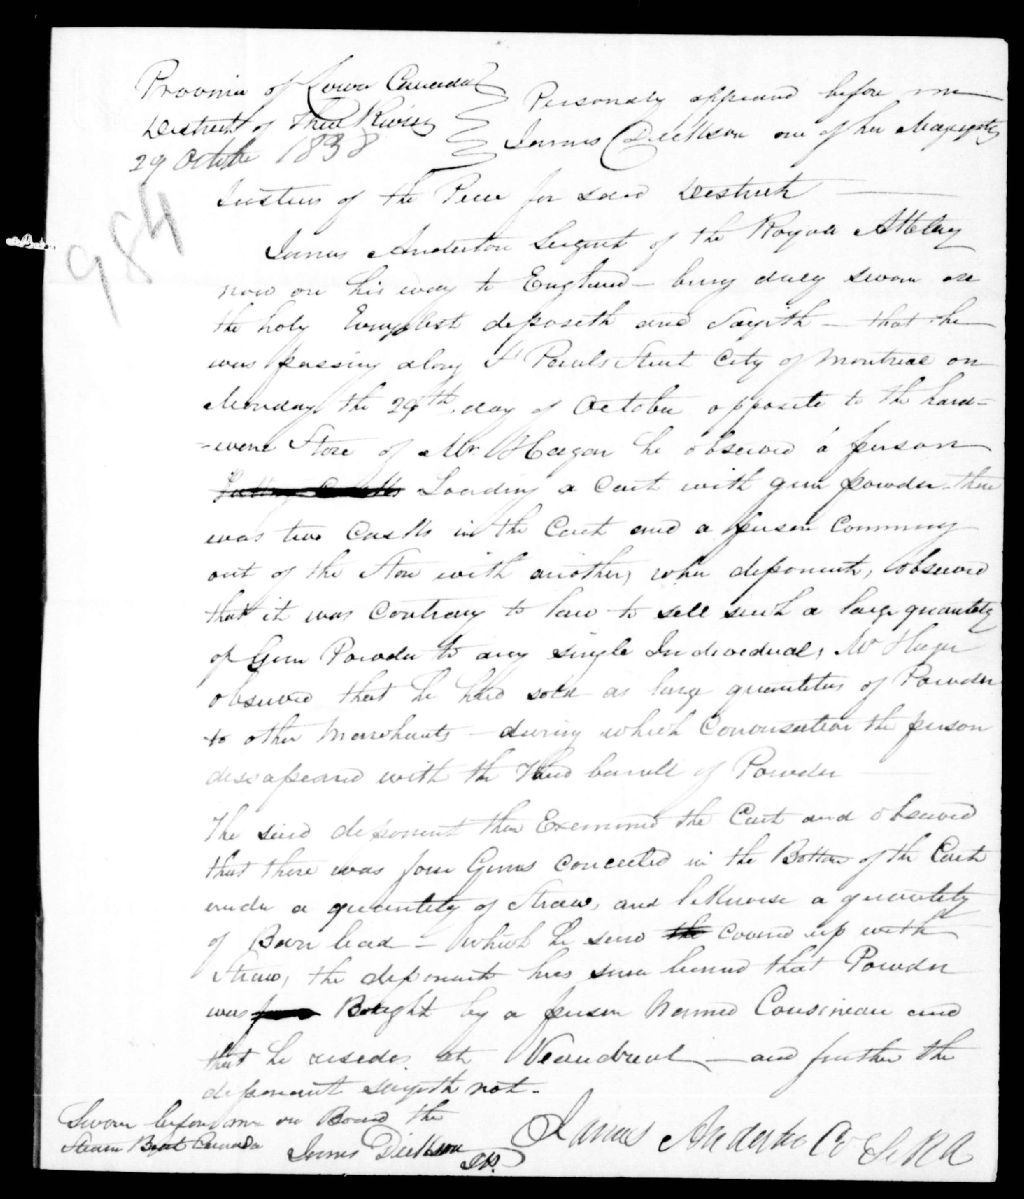 Province of Lower Canada
District of Three Rivers
29 October 1838
Personally appeared before me
James Dickson one of her Majestys
Justices of the Peace for said District
984
James Anderton Sergent of the Royal Attelery
now on his way to England – being duly sworn on
the holy Evangelist deposeth and Sayith – that he
was passing along St Pauls Street City of Montreal on
Monday the 29th day of October opposite to the hard-
-ware Store of Mr Hagar he observed a person
Loading a Cart with gun powder there
was two Casks in the Cart and a person Comming
out of the Store with another, when deponent, observed
that it was Contrary to law to sell such a large quantety
of Gun Powder to any single Individual, Mr Hagar
observed that he had sold as large quantities of Powder
to other Marchants – during which Conversation the person
dissapeared with the Third barrell of Powder
The said deponent then Examined the Cart and observed
that there was four Guns concealed in the Bottom of the Cart
under a quantety of Straw, and likewise a quantety
of Barr lead – which he saw covered up with
Straw, the deponent has since learned that Powder
was Bought by a person Named Cousineau and
that he resedes at Veaudreul – and further the
deponent sayeth not –
Sworn before me on Board the
Steam Boat Canada
James Dickson
J.P.
James Anderton